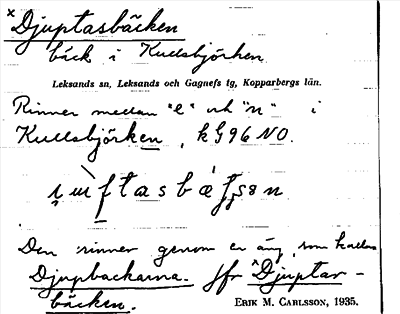 x Djuptasbäcken
bäck i Kullsbjörken
Leksands sn, Leksands och Gagnefs tg, Kopparbergs län.
Rinner mellan "l" och "n" i
Kullsbjörken, k G96 NO.
Den rinner genom en äng, som kallas
Djupbackarna. Jfr Djuptar-
bäcken.
ERIK M. CARLSSON, 1935.